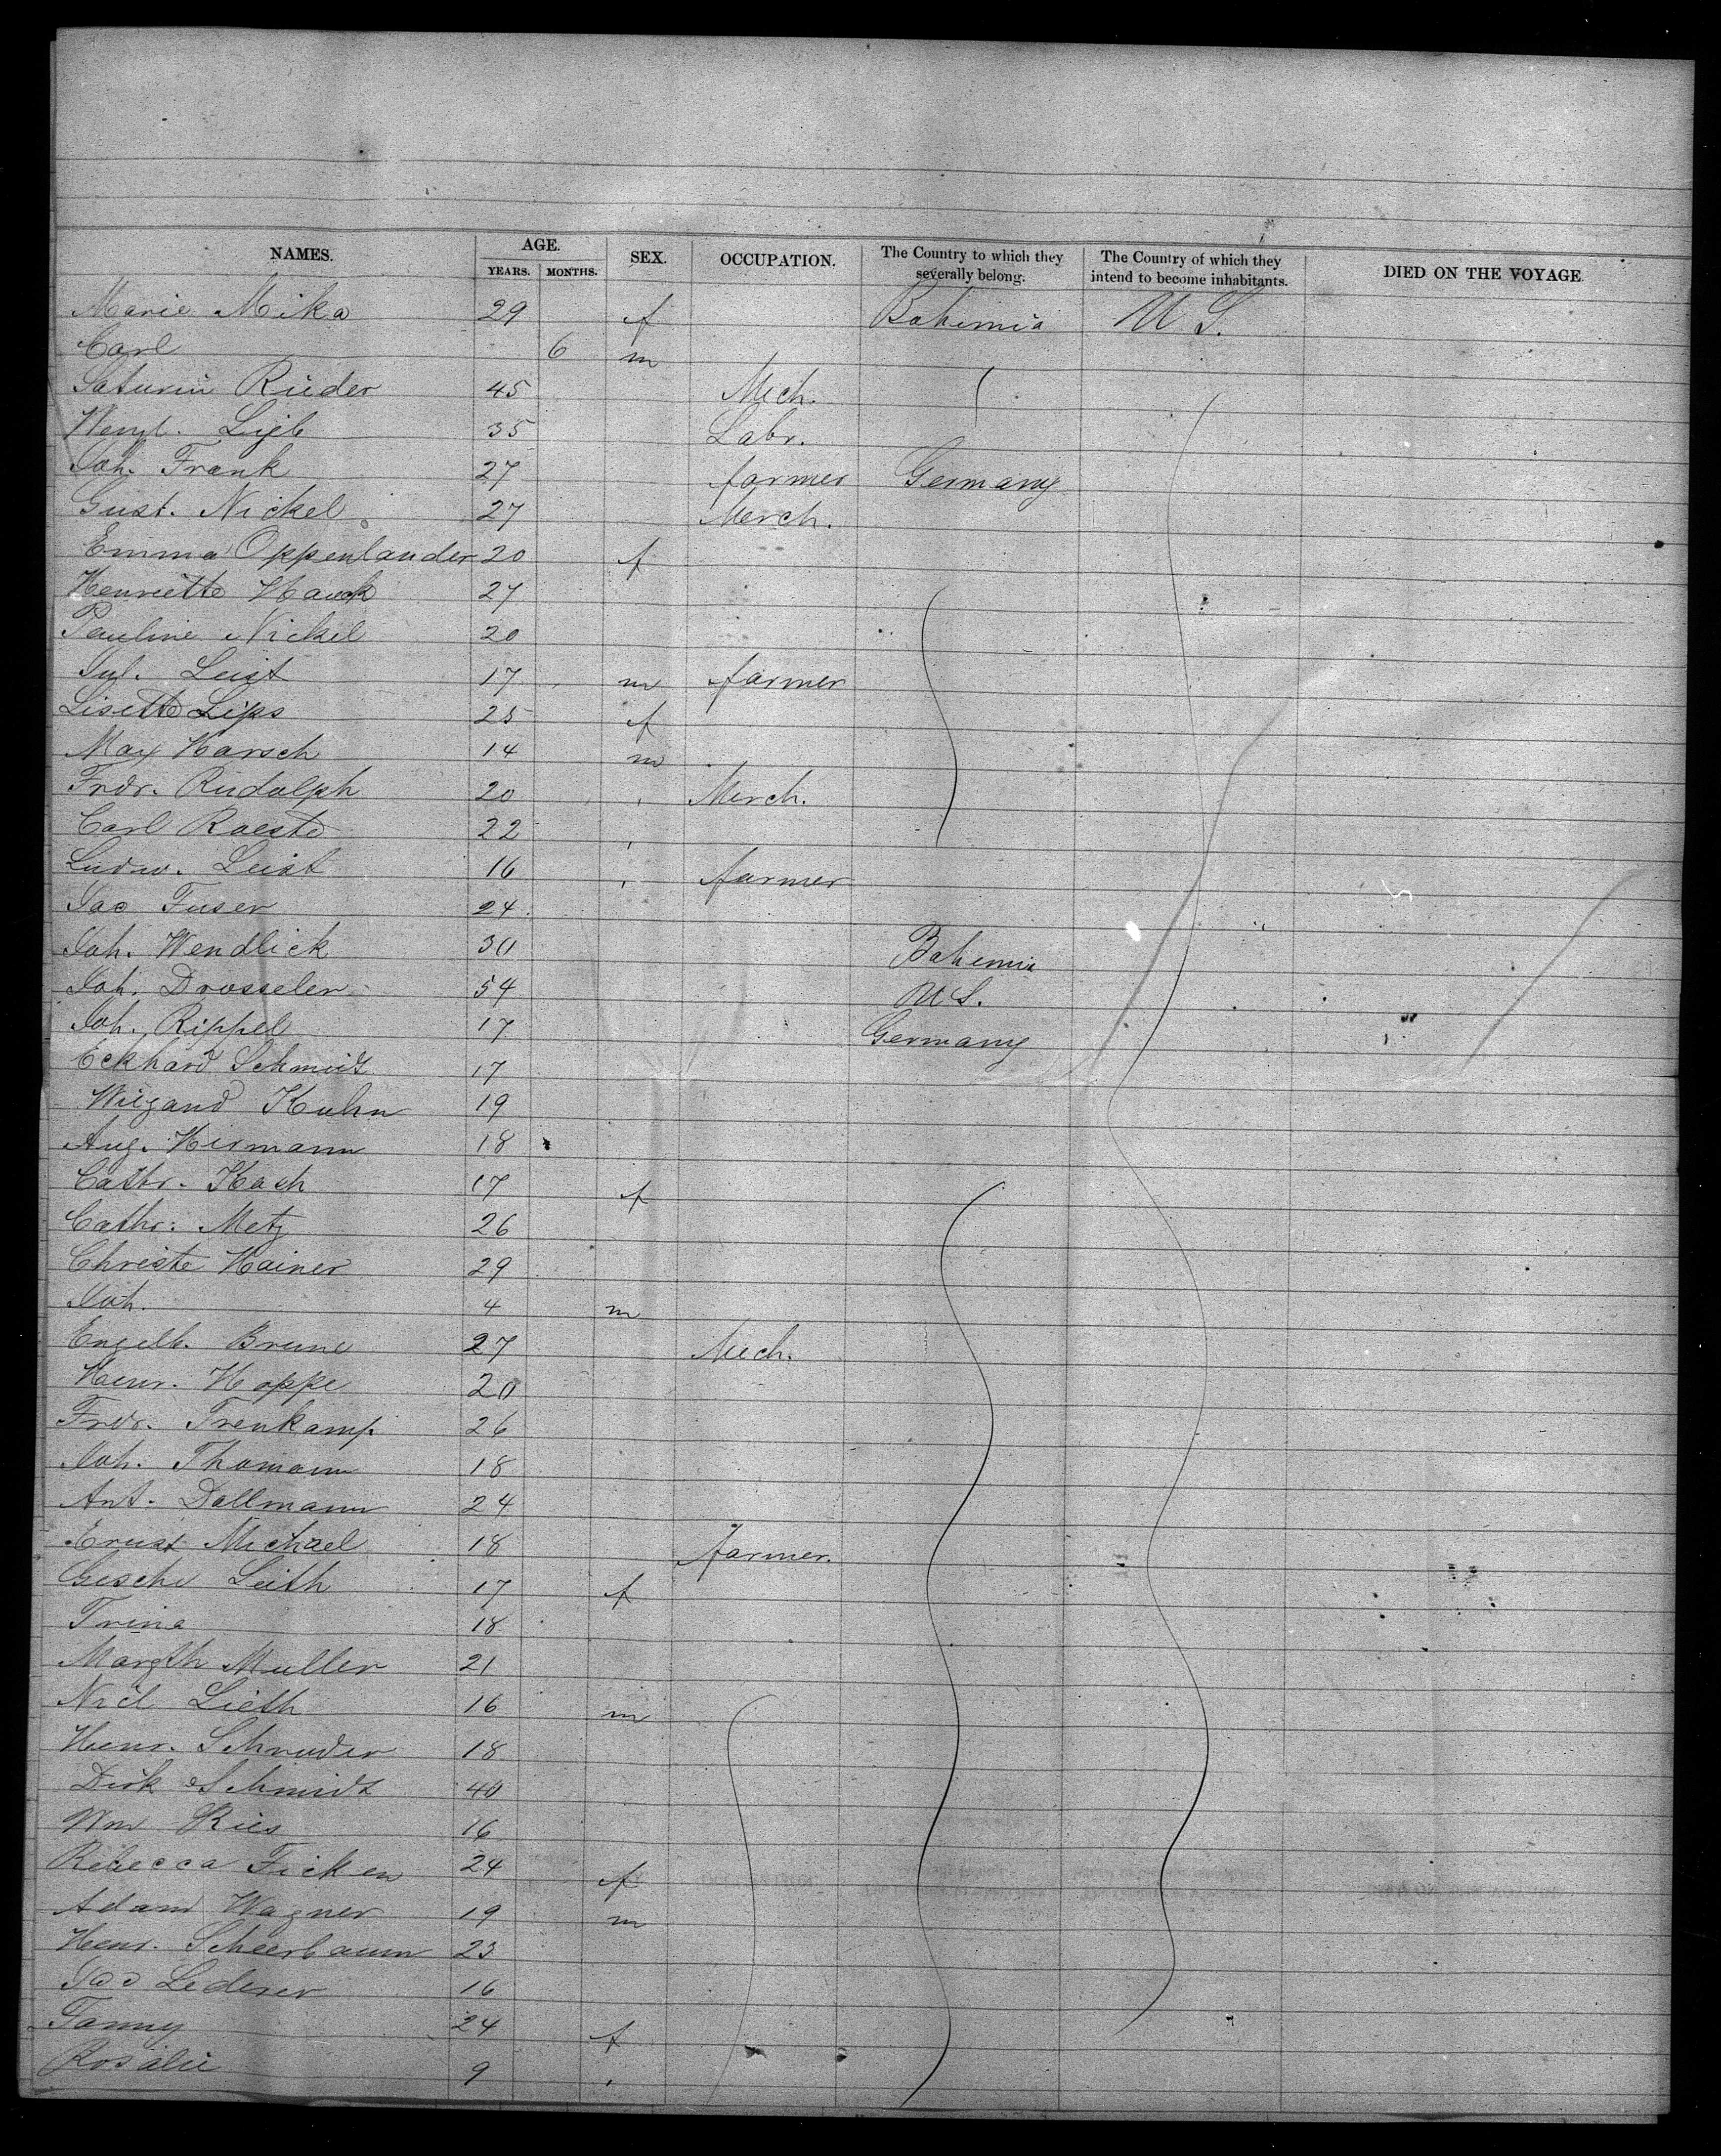 NAMES. AGE. SEX. OCCUPATION. The Country to which they severally belong. The Country of which they intend to become inhabitants. DIED ON THE VOYAGE
YEARS. MONTHS.
Marie Mika 29 f Bohemia U S.
Carl 6 m
Saturin Rieder 45 Mech.
Wenzl. 35 Labr.
Joh. Frank 27 farmer Germany
Gust. Nickel 27 Merch.
Emma Oppenlander 20 f
Henriette Hauck 27
Pauline Nickel 20
Jul. Leist 17 m farmer
Lisette Lips 25 f
Max Harsch 14 m
Frdr. Rudolph 20 Merch.
Carl 22
Ludw. Leist 16 farmer
Jac Fuser 24
Joh. Wendlick 30 Bohemia
Joh. Drosseler 54 U S.
Joh. Rippel 17 Germany
Eckhard Schmidt 17
Wiegand Kuhn 19
Aug. Hermann 18
Cathr. Hach 17 f
Cathr: Metz 26
Christe Hainer 29
Joh. 4 m
Engelb. Brune 27 Mech.
Henr. Hoppe 20
Frdr. Trenkamp 26
Joh. Thomann 18
Ant. Dallmann 24
Ernst Michael 18 farmer.
Gesche Leith 17 f
Trina 18
Margth Muller 21
Nicl Lieth 16 m
Henr. Schruder 18
Dirk Schmidt 40
Wm Ries 16
Rebecca Ficken 24 f
Adam Wagner 19 m
Henr. Scheerbaum 23
Jac Lederer 16
Fanny 24 f
Rosalie 9